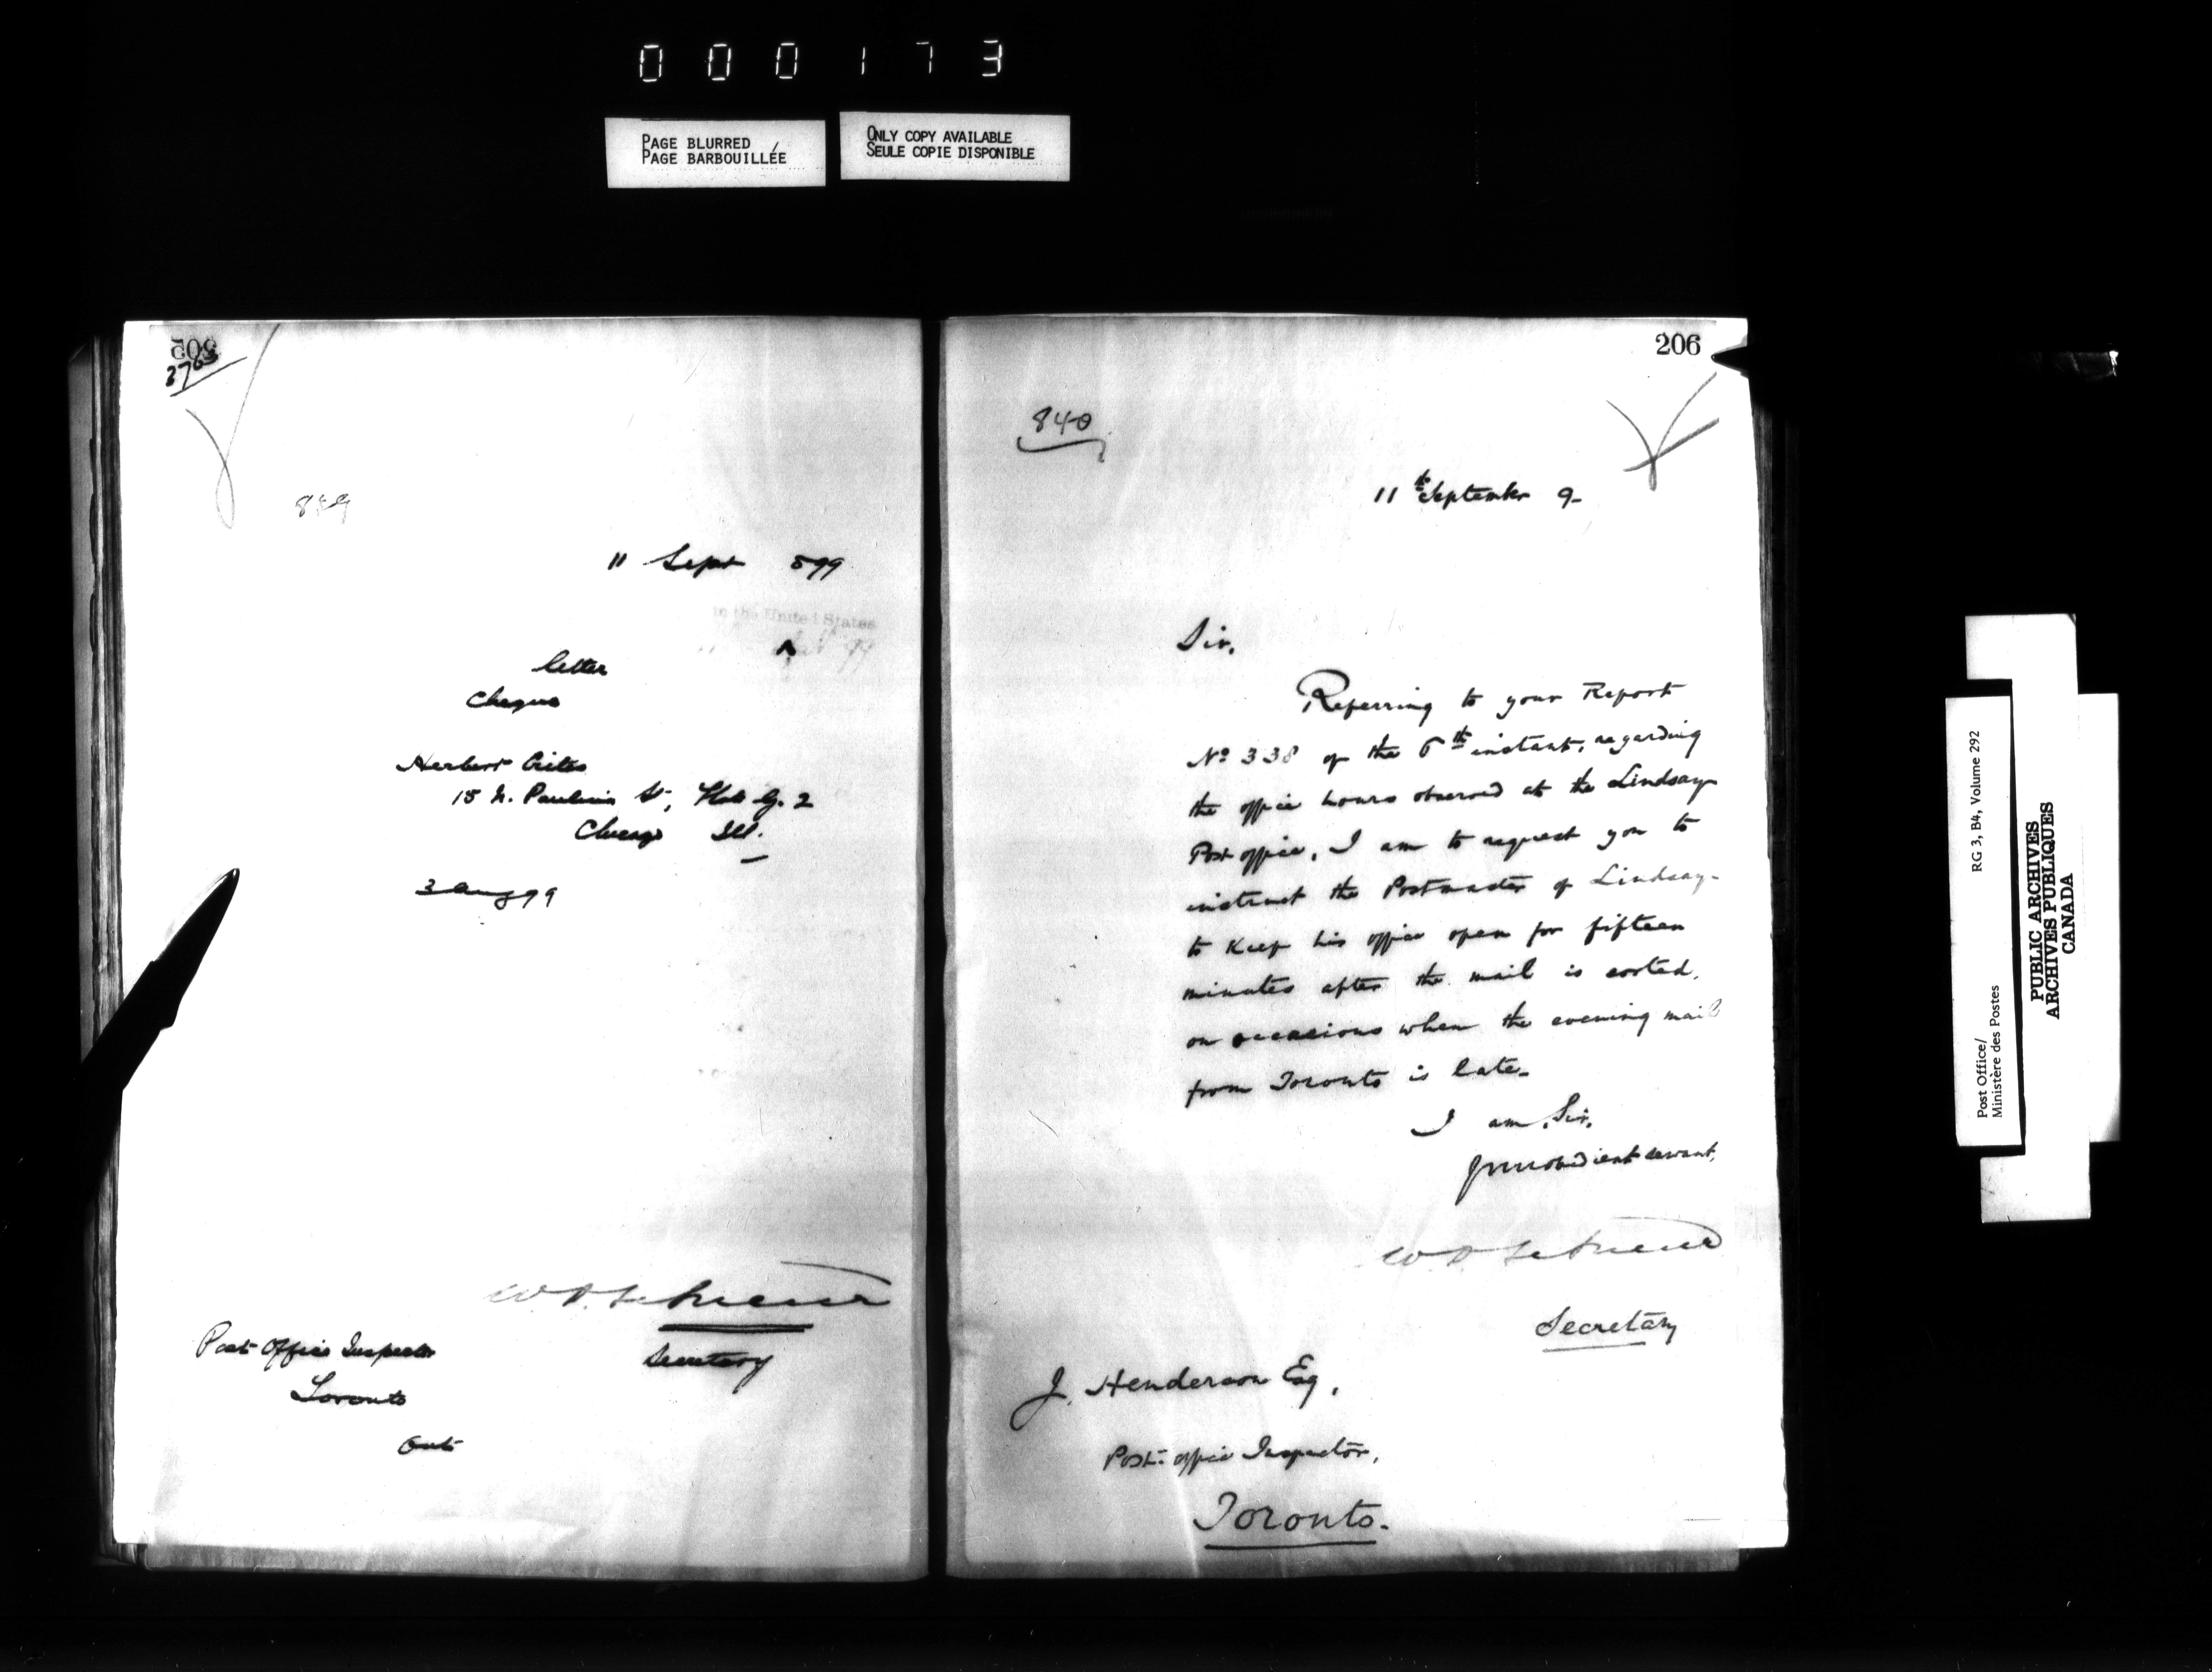 000173
PAGE BLURRED
PAGE BARBOUILLÉE
ONLY COPY AVAILABLE
SEULE COPIE DISPONIBLE
205
3763
11 Sept 899
in the United States
letter
Cheque
Herbert
15 N. Paulina St, Flat G. 2
Chicago Ill.
3 Aug 99
Secretary
Post Office Inspector
Toronto
Ont
206
840
11th September 9-
Sir,
Referring to your Report
No 338 of the 6th instant, regarding
the office hours observed at the Lindsay
Post office, I am to request you to
instruct the Postmaster of Lindsay
to keep his office open for fifteen
minutes after the mail is sorted,
on occasions when the evening mail
from Toronto is late.
I am, Sir,
Your obedient servant,
Secretary
J. Henderson Esq,
Post-office Inspector,
Toronto.
Post Office/ RG 3, B4, Volume 292
Ministère des Postes
PUBLIC ARCHIVES
ARCHIVES PUBLIQUES
CANADA